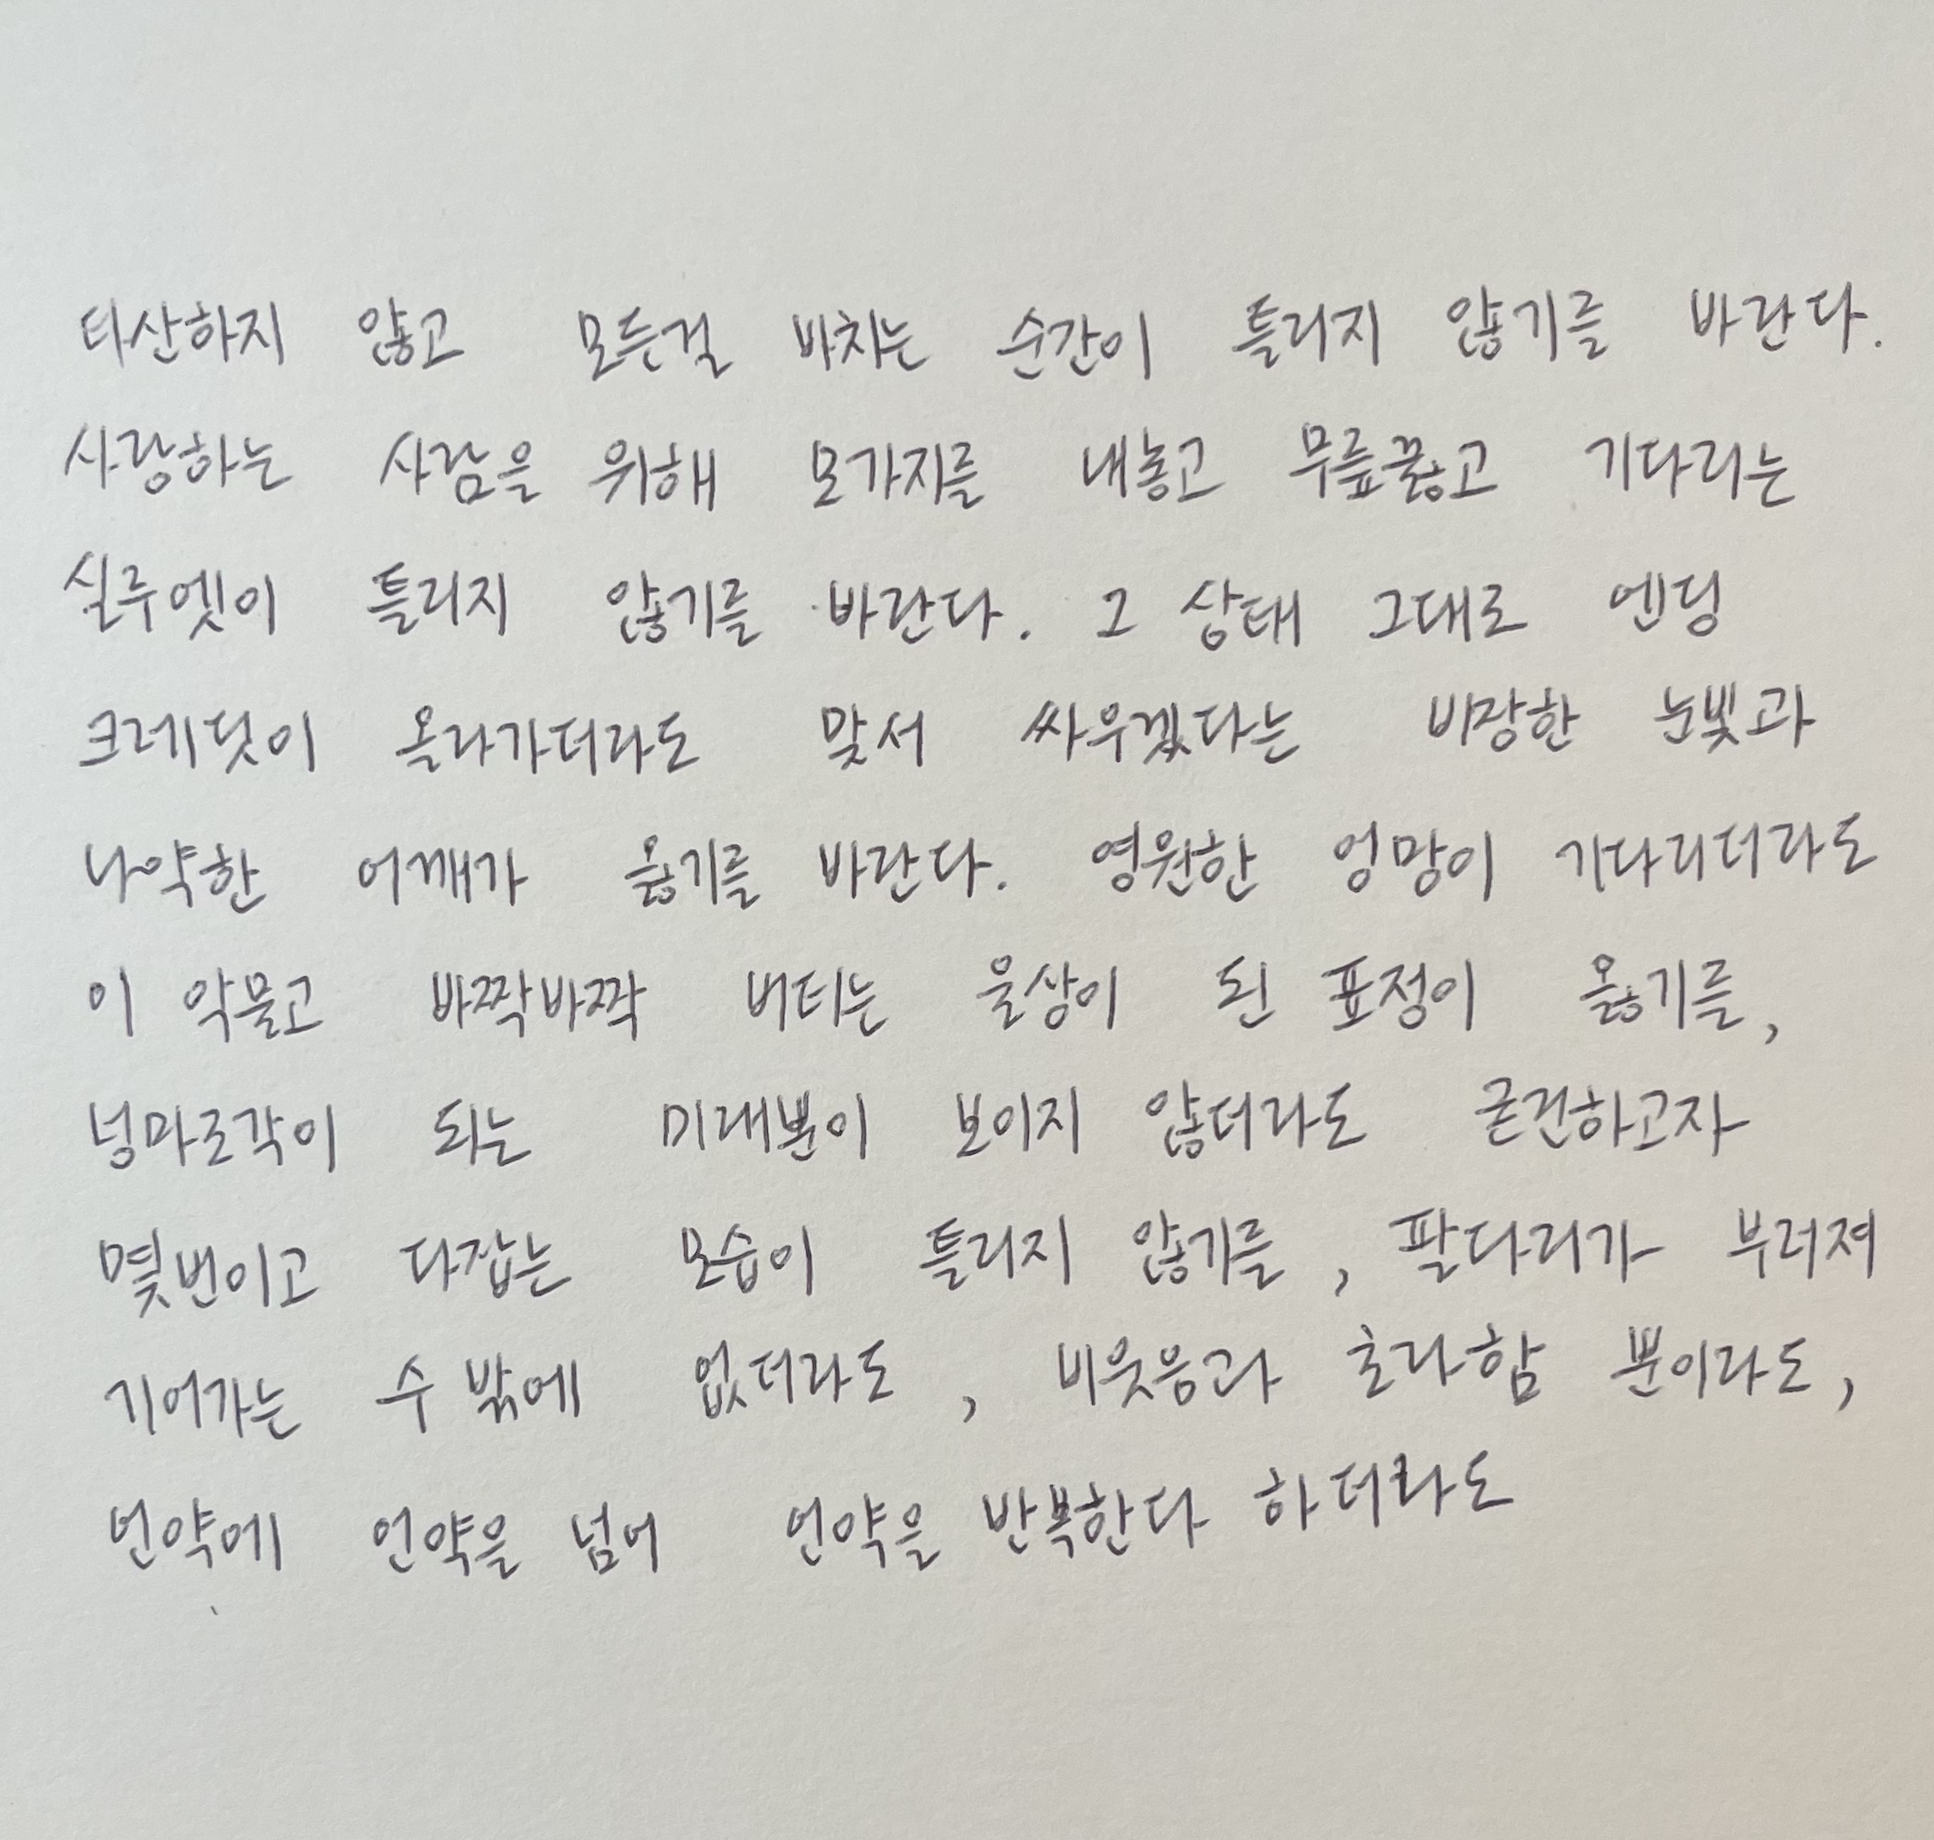 타산하지 않고 모든걸 바치는 순간이 틀리지 않기를 바란다.
사랑하는 사람을 위해 모가지를 내놓고 무릎꿇고 기다리는
실루엣이 틀리지 않기를 바란다. 그 상태 그대로 엔딩
크레딧이 올라가더라도 맞서 싸우겠다는 비장한 눈빛과
나약한 어깨가 옳기를 바란다. 영원한 엉망이 기다리더라도
이 악물고 바짝바짝 버티는 울상이 된 표정이 옳기를,
넝마조각이 되는 미래뿐이 보이지 않더라도 굳건하고자
몇번이고 다잡는 모습이 틀리지 않기를, 팔다리가 부러져
기어가는 수 밖에 없더라도, 비웃음과 초라함 뿐이라도,
언약에 언약을 넘어 언약을 반복한다 하더라도